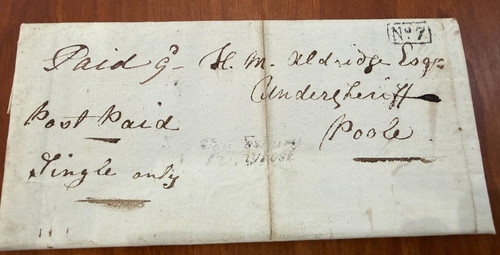 No. 7
Paid 9 H. M. Aldridge Esqr.
Undersheriff
Post Paid
Poole
Single only